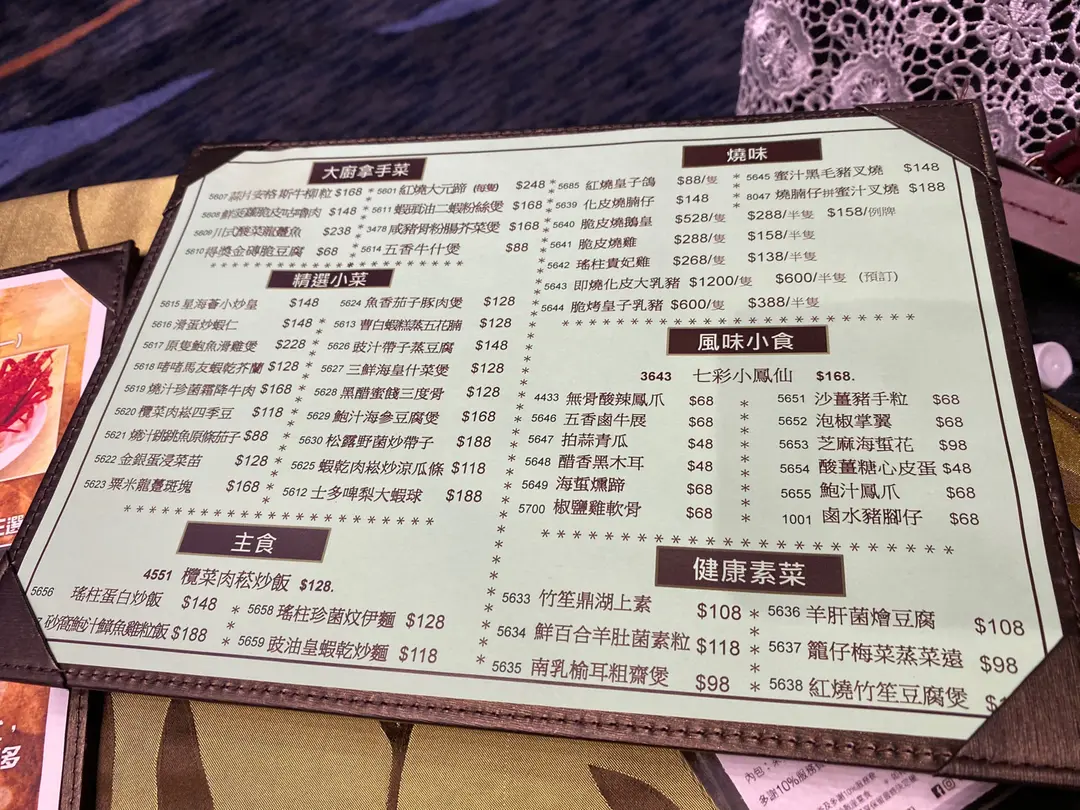 大廚拿手菜
5607 蒜片安格斯牛柳粒 $168
5608 鮮菠蘿脆皮咕嚕肉 $148
5609 川式酸菜龍躉魚 $238
5610 得獎金磚脆豆腐 $68
5601 紅燒大元蹄 (每隻) $248
5611 蝦頭油二蝦粉絲煲 $168
3478 咸豬骨粉腸芥菜煲 $168
5614 五香牛什煲 $88
精選小菜
5615 星海薈小炒皇 $148
5616 滑蛋炒蝦仁 $148
5617 原隻鮑魚滑雞煲 $228
5618 啫啫馬友蝦乾芥蘭 $128
5619 燒汁珍菌霜降牛肉 $168
5620 欖菜肉崧四季豆 $118
5621 燒汁跳跳魚原條茄子 $88
5622 金銀蛋浸菜苗 $128
5623 粟米龍躉斑塊 $168
5624 魚香茄子豚肉煲 $128
5613 曹白蝦糕蒸五花腩 $128
5626 豉汁帶子蒸豆腐 $148
5627 三鮮海皇什菜煲 $128
5628 黑醋蜜餞三度骨 $128
5629 鮑汁海參豆腐煲 $168
5630 松露野菌炒帶子 $188
5625 蝦乾肉崧炒涼瓜條 $118
5612 士多啤梨大蝦球 $188
主食
4551 欖菜肉崧炒飯 $128.
5656 瑤柱蛋白炒飯 $148
砂窩鮑汁鱆魚雞粒飯 $188
5658 瑤柱珍菌炆伊麵 $128
5659 豉油皇蝦乾炒麵 $118
燒味
5685 紅燒皇子鴿 $88/隻
5639 化皮燒腩仔 $148
5640 脆皮燒鵝皇 $528/隻 $288/半隻 $158/例牌
5641 脆皮燒雞 $288/隻 $158/半隻
5642 瑤柱貴妃雞 $268/隻 $138/半隻
5643 即燒化皮大乳豬 $1200/隻 $600/半隻 (預訂)
5644 脆烤皇子乳豬 $600/隻 $388/半隻
5645 蜜汁黑毛豬叉燒 $148
8047 燒腩仔拼蜜汁叉燒 $188
風味小食
3643 七彩小鳳仙 $168.
4433 無骨酸辣鳳爪 $68
5646 五香鹵牛展 $68
5647 拍蒜青瓜 $48
5648 醋香黑木耳 $48
5649 海蜇燻蹄 $68
5700 椒鹽雞軟骨 $68
5651 沙薑豬手粒 $68
5652 泡椒掌翼 $68
5653 芝麻海蜇花 $98
5654 酸薑糖心皮蛋 $48
5655 鮑汁鳳爪 $68
1001 鹵水豬腳仔 $68
健康素菜
5633 竹笙鼎湖上素 $108
5634 鮮百合羊肚菌素粒 $118
5635 南乳榆耳粗齋煲 $98
5636 羊肝菌燴豆腐 $108
5637 籠仔梅菜蒸菜遠 $98
5638 紅燒竹笙豆腐煲
多謝10%服務費